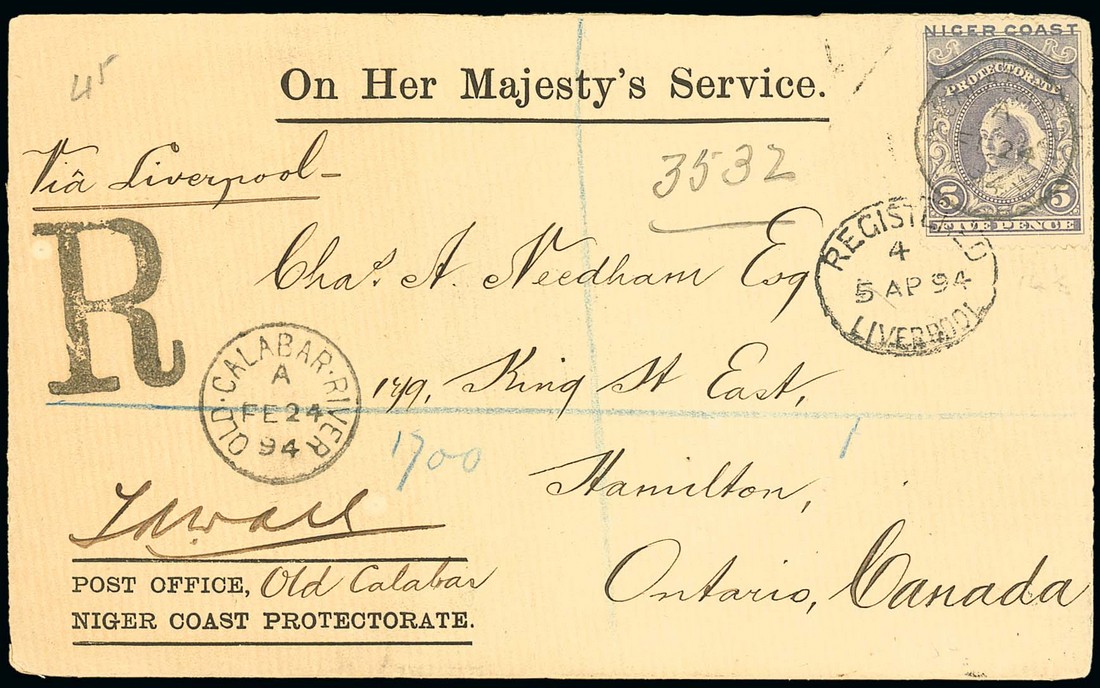 45
On Her Majesty's Service.
NIGER COAST
PROTECTORATE
5 5
FIVE PENCE
Viâ Liverpool
3532
R
REGISTERED
4
5 AP 94
LIVERPOOL
Chas. A. Needham Esq
179, King St East,
Hamilton,
Ontario, Canada
OLD·CALABAR·RIVER
A
FE 24
94
1700
POST OFFICE, Old Calabar
NIGER COAST PROTECTORATE.